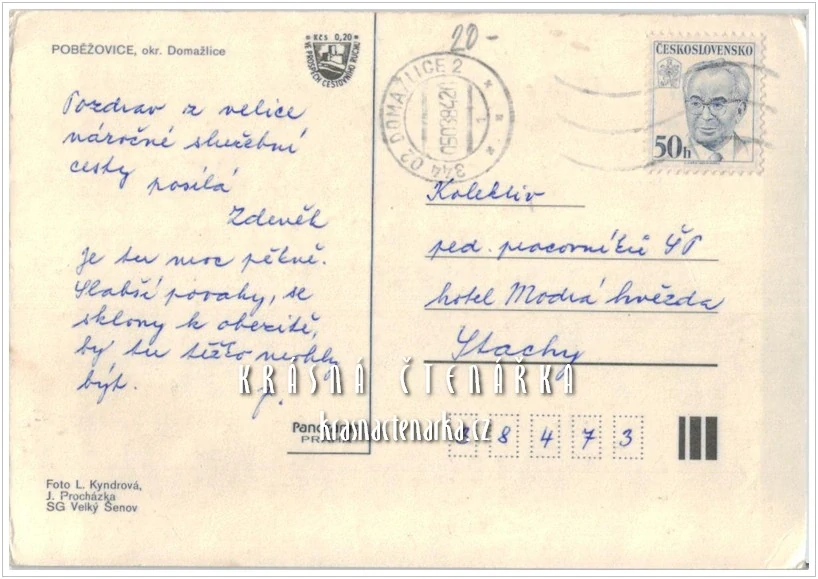 POBĚŽOVICE, okr. Domažlice
Kčs 0,20
VE PROSPĚCH CESTOVNÍHO RUCHU
20-
344 02 DOMAŽLICE 2
1
ČESKOSLOVENSKO
50h
Pozdrav z velice
náročné služební
cesty posílá
Zdeněk
Je tu moc pěkně.
Slabší povahy, se
sklony k obezitě,
by tu těžko mohly
být. J.
Kolektiv
ped. pracovníků ŠP
hotel Modrá hvězda
Stachy
38473
KRÁSNÁ ČTENÁŘKA
krasnactenarka.cz
Foto L. Kyndrová,
J. Procházka
SG Velký Šenov